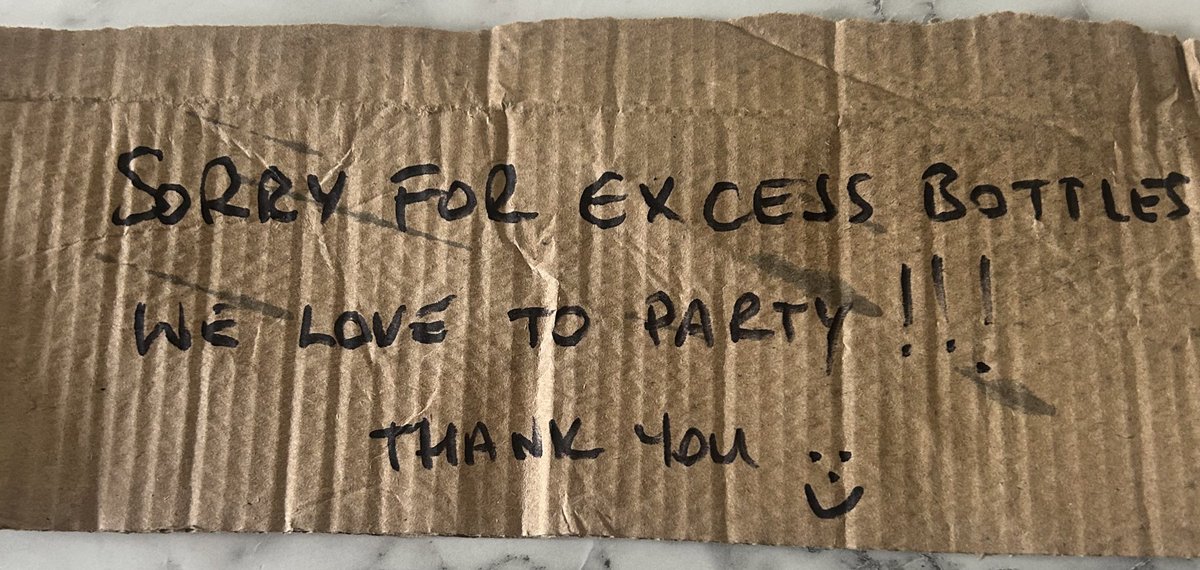 SORRY FOR EXCESS BOTTLES
WE LOVE TO PARTY !!!
THANK YOU